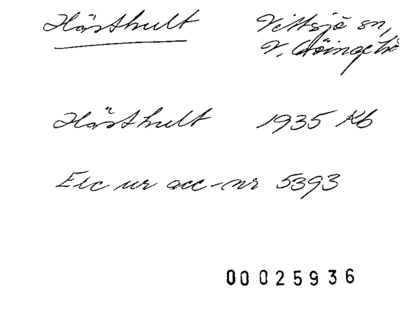 Hästhult Vittsjö sn,
V. Göinge hd
Hästhult 1935 Kb
Exc ur acc-nr 5393
00025936